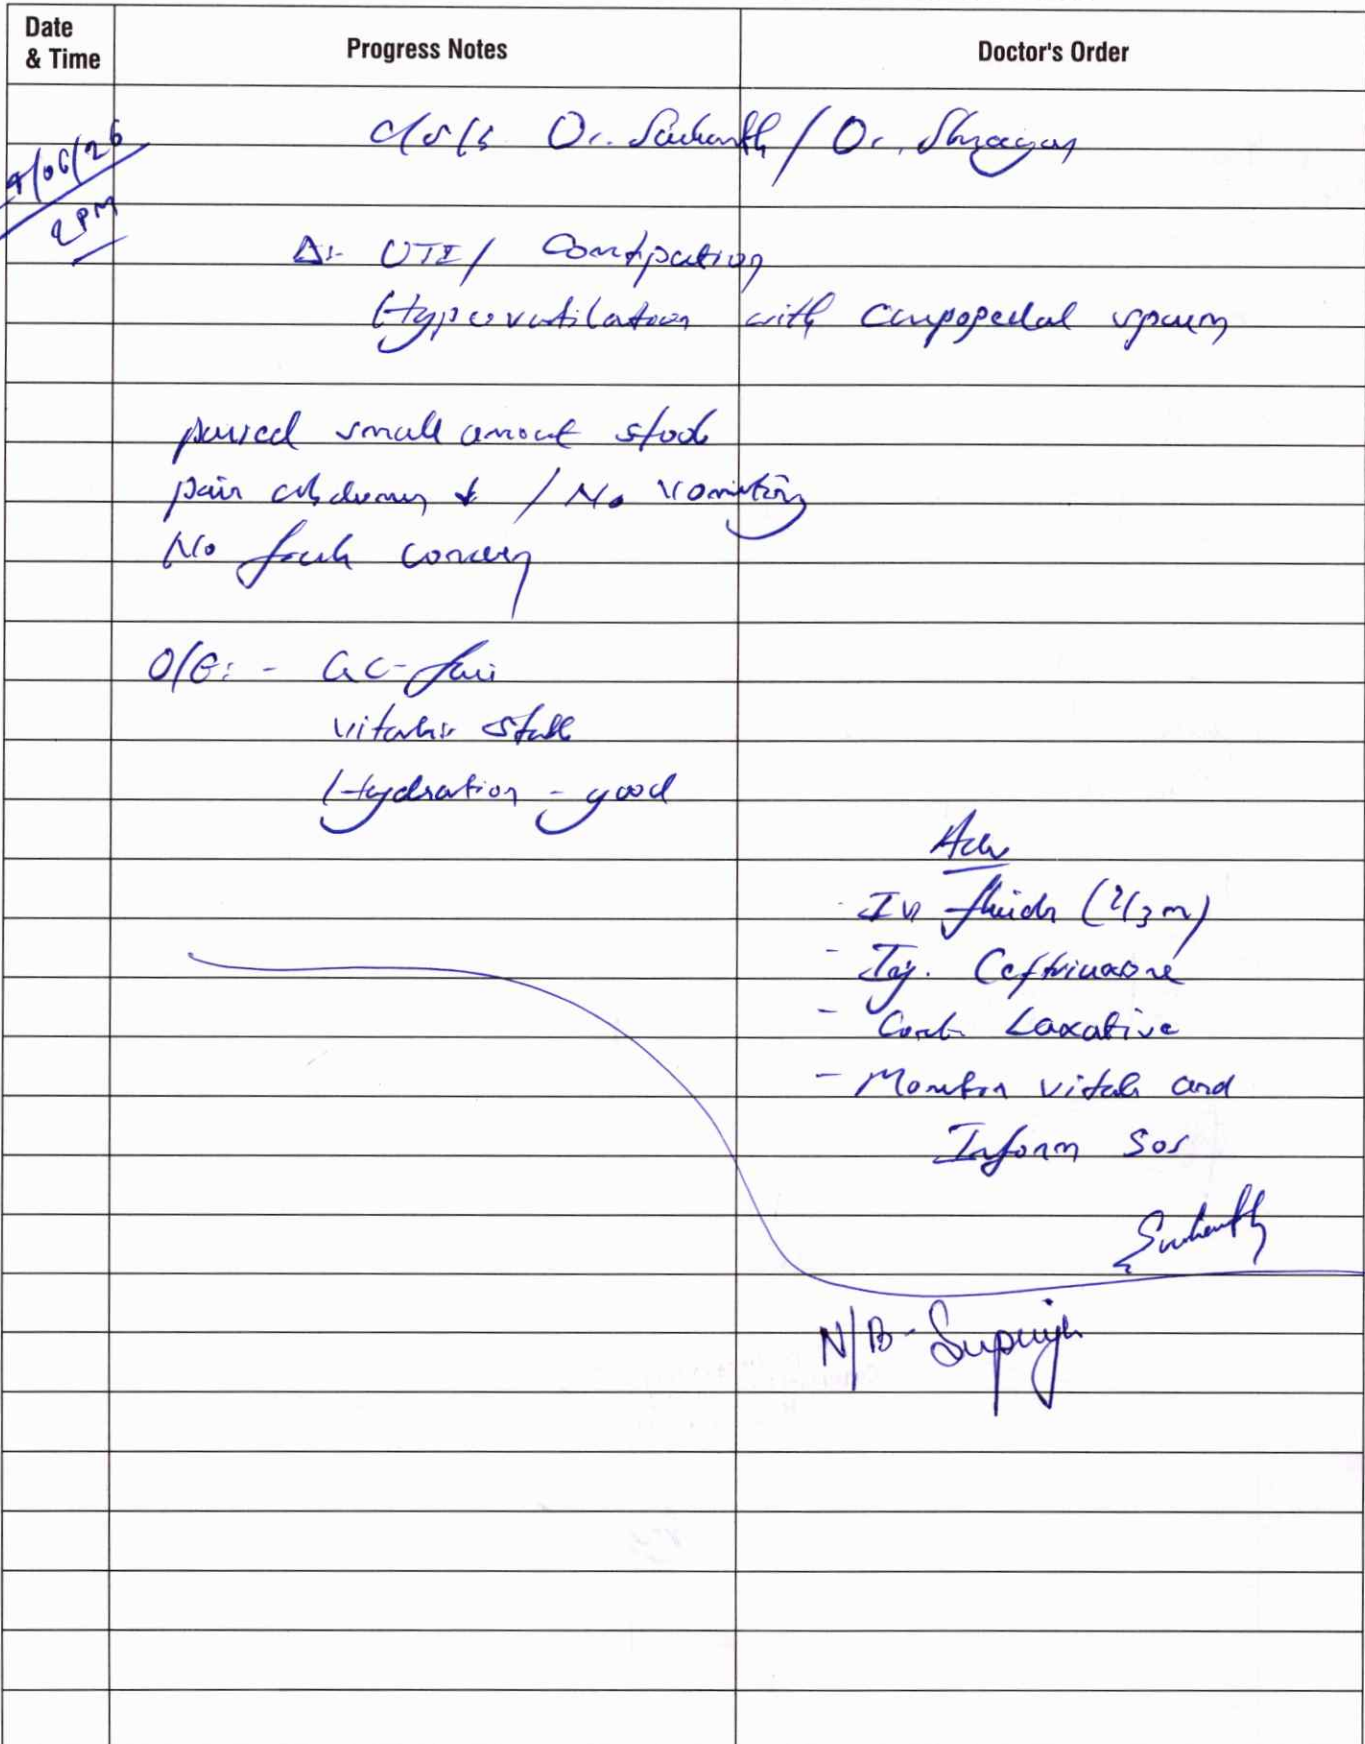 Date & Time
Progress Notes
Doctor's Order
/06/26
2PM
c/s/b Dr. / Dr.
Δ:- UTI / Constipation
Hyperventilation with carpopedal spasm
passed small amount stool
pain abdomen + / No vomiting
No fresh concern
O/E: - GC - fair
vitals stable
Hydration - good
Adv
- IV fluids (2/3 m)
- Inj. Ceftriaxone
- Cont. Laxative
- Monitor vitals and
Inform SOS
N/B -